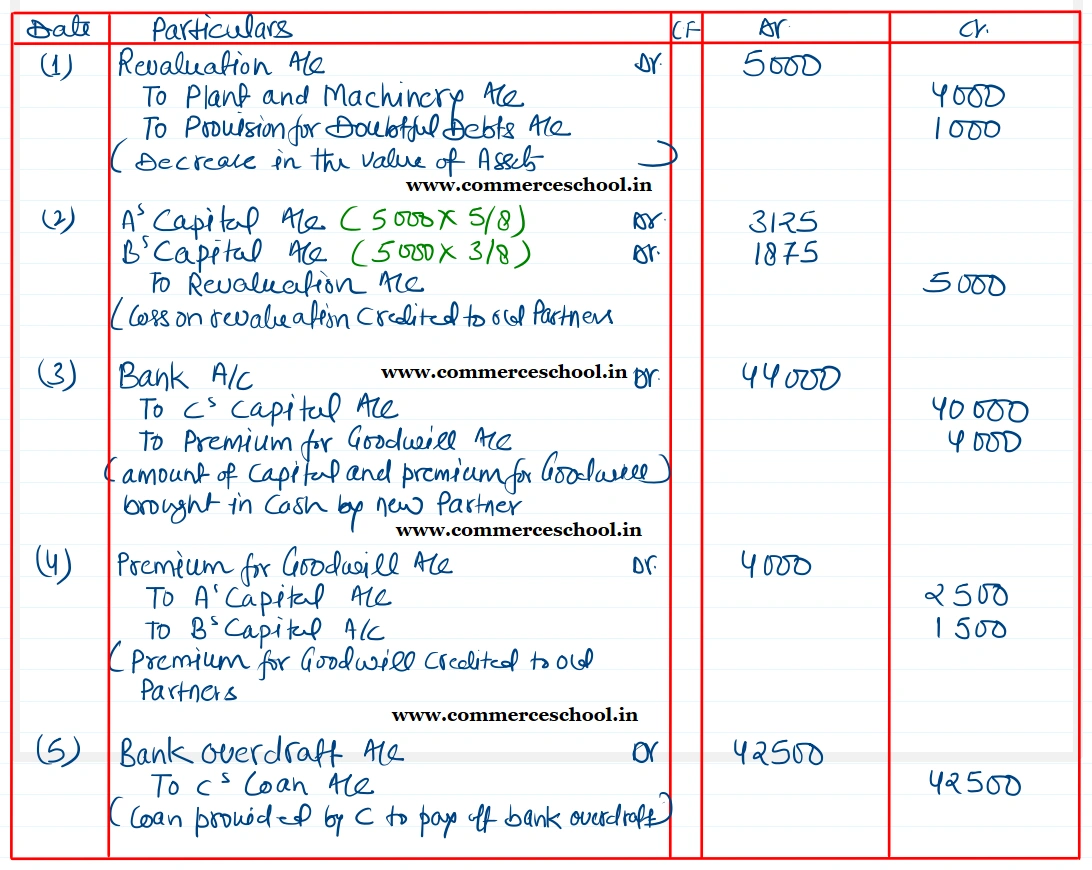 Date Particulars CF Dr. Cr.
(1) Revaluation A/c Dr. 5000
To Plant and Machinery A/c 4000
To Provision for Doubtful Debts A/c 1000
( Decrease in the value of Assets )
www.commerceschool.in
(2) A's Capital A/c ( 5000 X 5/8 ) Dr. 3125
B's Capital A/c ( 5000 X 3/8 ) Dr. 1875
To Revaluation A/c 5000
( Loss on revaluation Credited to old Partners
www.commerceschool.in
(3) Bank A/C Dr. 44000
To C's Capital A/c 40000
To Premium for Goodwill A/c 4000
( amount of Capital and premium for Goodwill )
brought in Cash by new Partner
www.commerceschool.in
(4) Premium for Goodwill A/c Dr. 4000
To A's Capital A/c 2500
To B's Capital A/C 1500
( Premium for Goodwill Credited to old
Partners
www.commerceschool.in
(5) Bank overdraft A/c Dr 42500
To C's Loan A/c 42500
( Loan provided by C to pay off bank overdraft )